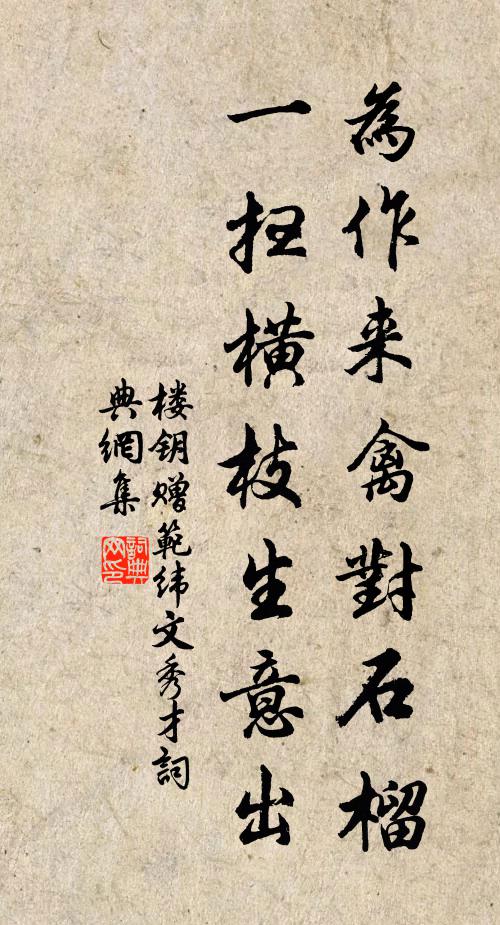 為作来禽對石榴
一扫橫枝生意出
楼钥赠範纬文秀才詞
典網集
詞典网印